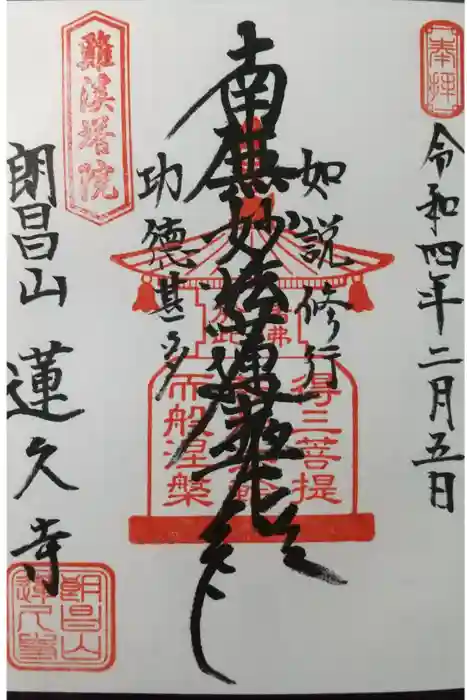 奉拝
令和四年二月五日
如説修行
南無妙法蓮華経
功德甚多
得三菩提
而般涅槃
難渓塔院
朗昌山 蓮久寺
朗昌山
蓮久寺